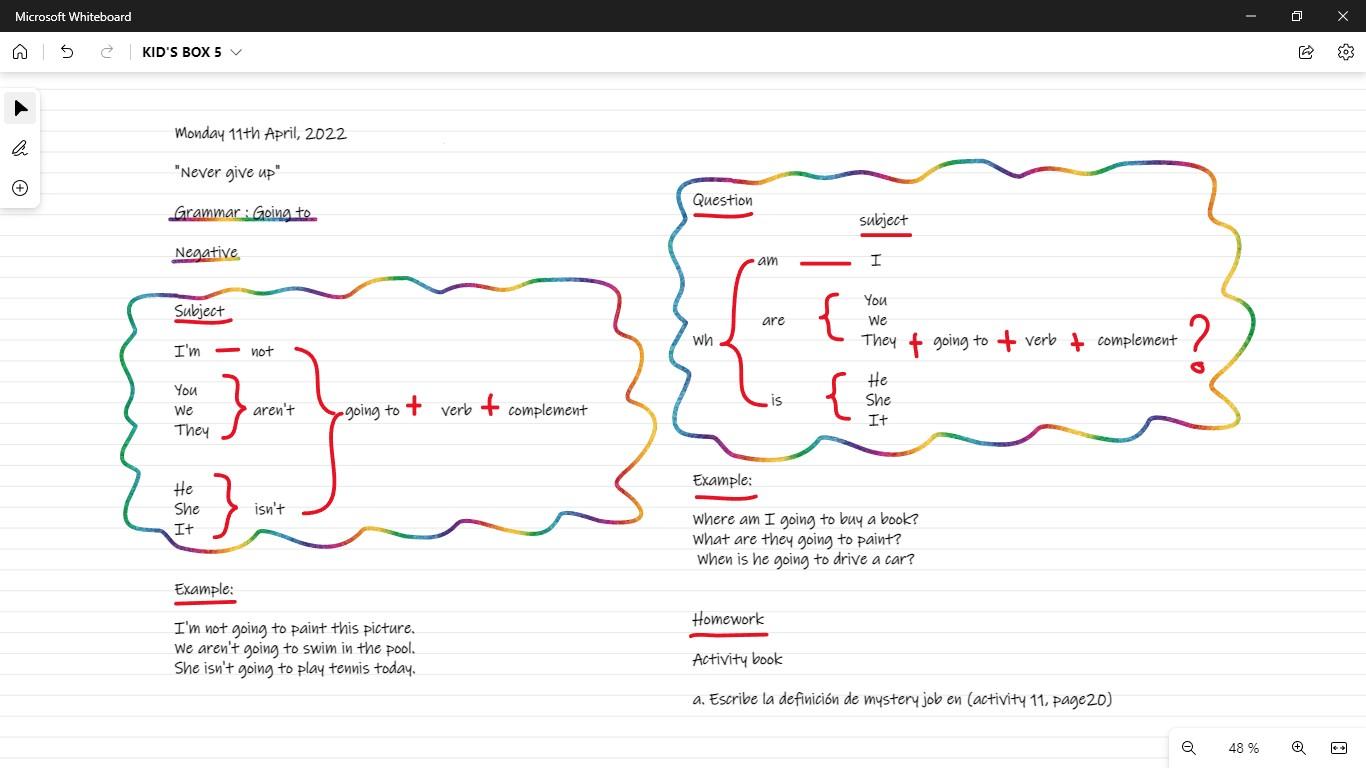 Microsoft Whiteboard
KID'S BOX 5
Monday 11th April, 2022
"Never give up"
Grammar : Going to
Negative
Subject
I'm — not
You
We
They
aren't
He
She
It
isn't
going to + verb + complement
Example:
I'm not going to paint this picture.
We aren't going to swim in the pool.
She isn't going to play tennis today.
Question
subject
Wh
am — I
are
You
We
They
is
He
She
It
+ going to + verb + complement ?
Example:
Where am I going to buy a book?
What are they going to paint?
When is he going to drive a car?
Homework
Activity book
a. Escribe la definición de mystery job en (activity 11, page20)
48 %